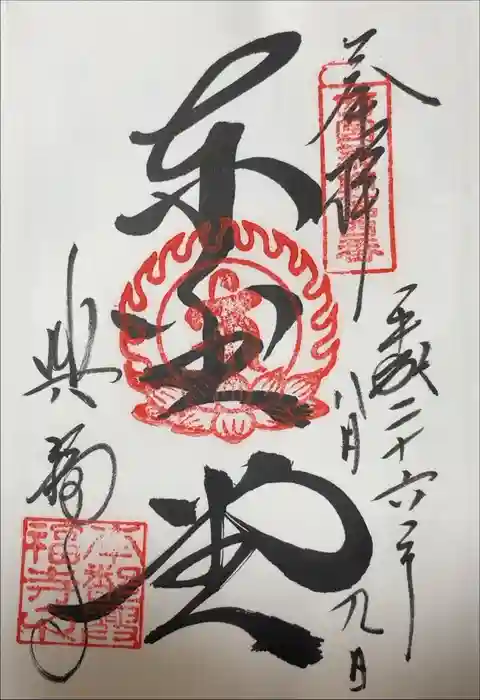 奉拝
平成二十六年
八月九日
東金堂
興福寺